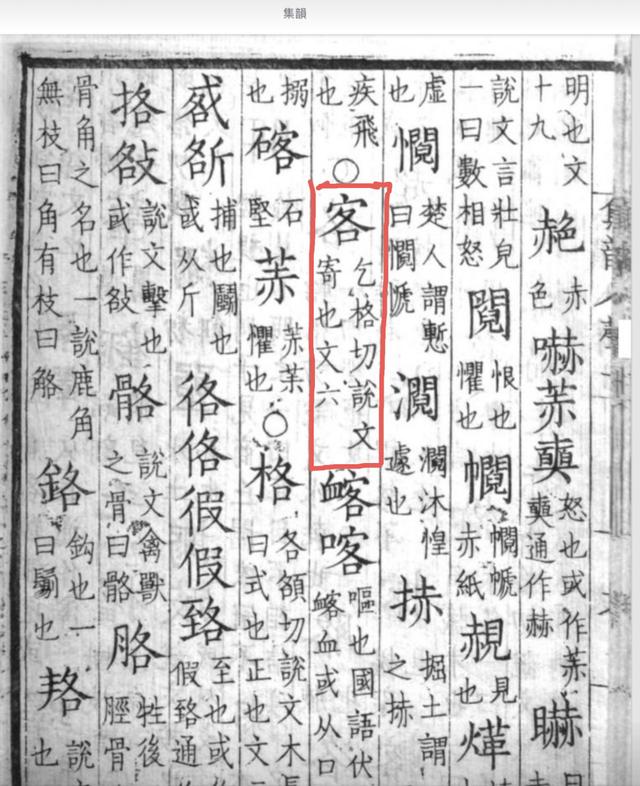 集韻
明也文十九 赩 赤色 嚇 奭 怒也或作 奭通作赫
說文言壯皃一曰數相怒 鬩 恨也懼也 赤紙也 見
虛也 楚人謂慙曰 沐惶遽也 捇 掘土謂之捇
疾飛也 ○ 客 乞格切說文寄也文六 衉 喀 嘔也國語伏衉血或从口
搦也 硌 石堅 懼也 ○ 格 各頟切說文木長曰式也正也文
捕也鬬也或从斤 佫 徦 假 至也或作假 通
挌 敋 說文擊也或作敋 骼 說文禽獸之骨曰骼 胳 牲後脛骨
骨角之名也一說鹿角無枝曰角有枝曰觡 鉻 鉤也一曰鬀也 說也